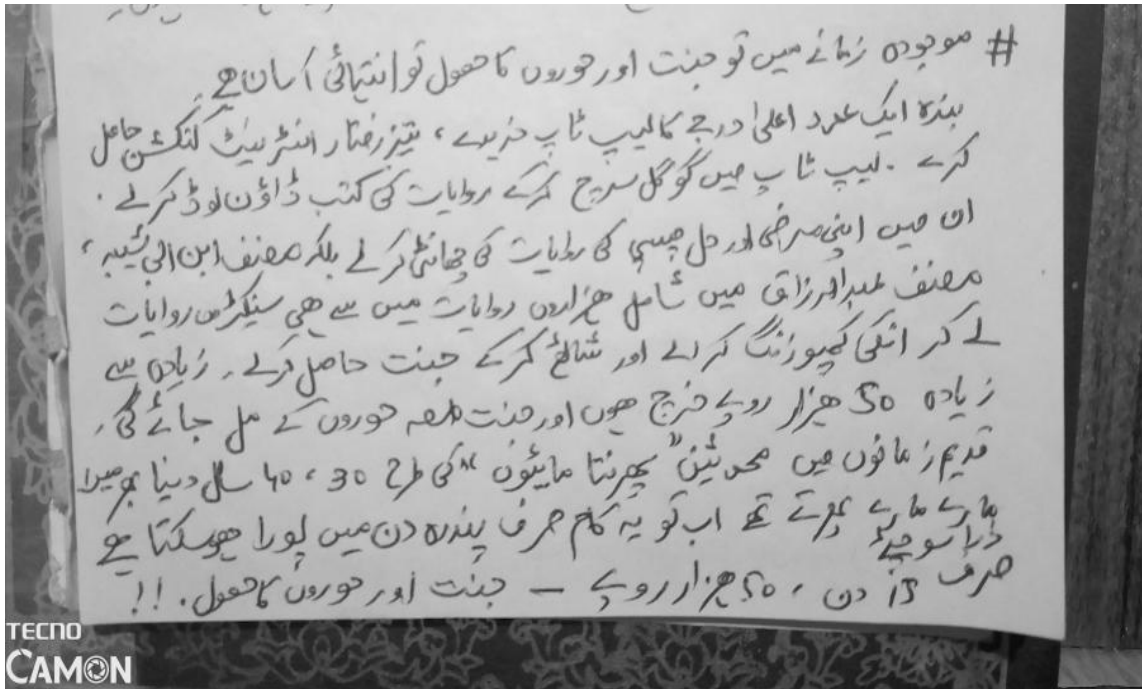 # موجودہ زمانے میں تو جنت اور حوروں کا حصول تو انتہائی آسان ہے
بندہ ایک عدد اعلیٰ درجے کا لیپ ٹاپ خریدے، تیز رفتار انٹرنیٹ کنکشن حاصل
کرے. لیپ ٹاپ میں گوگل سرچ کرکے روایات کی کتب ڈاؤن لوڈ کرلے.
ان میں اپنی مرضی اور دل چسپی کی روایات کی چھانٹی کرلے بلکہ مصنف ابن ابی شیبہ،
مصنف عبدالرزاق میں شامل ھزاروں روایات میں سے ھی سینکڑوں روایات
لے کر انکی کمپوزنگ کرالے اور شائع کرکے جنت حاصل کرلے. زیادہ سے
زیادہ 50 ھزار روپے خرچ ھوں اور جنت حوروں کے مل جائے گی.
قدیم زمانوں میں محدثین "کی طرح 30، 40 سال دنیا بھر میں
مارے مارے پھرتے تھے اب تو یہ کام صرف پندرہ دن میں پورا ھوسکتا ہے
ذرا سوچئے
صرف 15 دن، 50 ھزار روپے – جنت اور حوروں کا حصول.!!
TECNO
CAMON